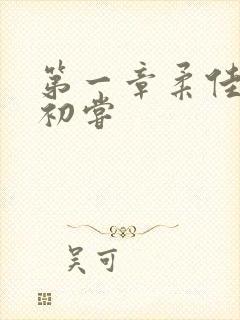 第一章柔佳
初尝
吴可